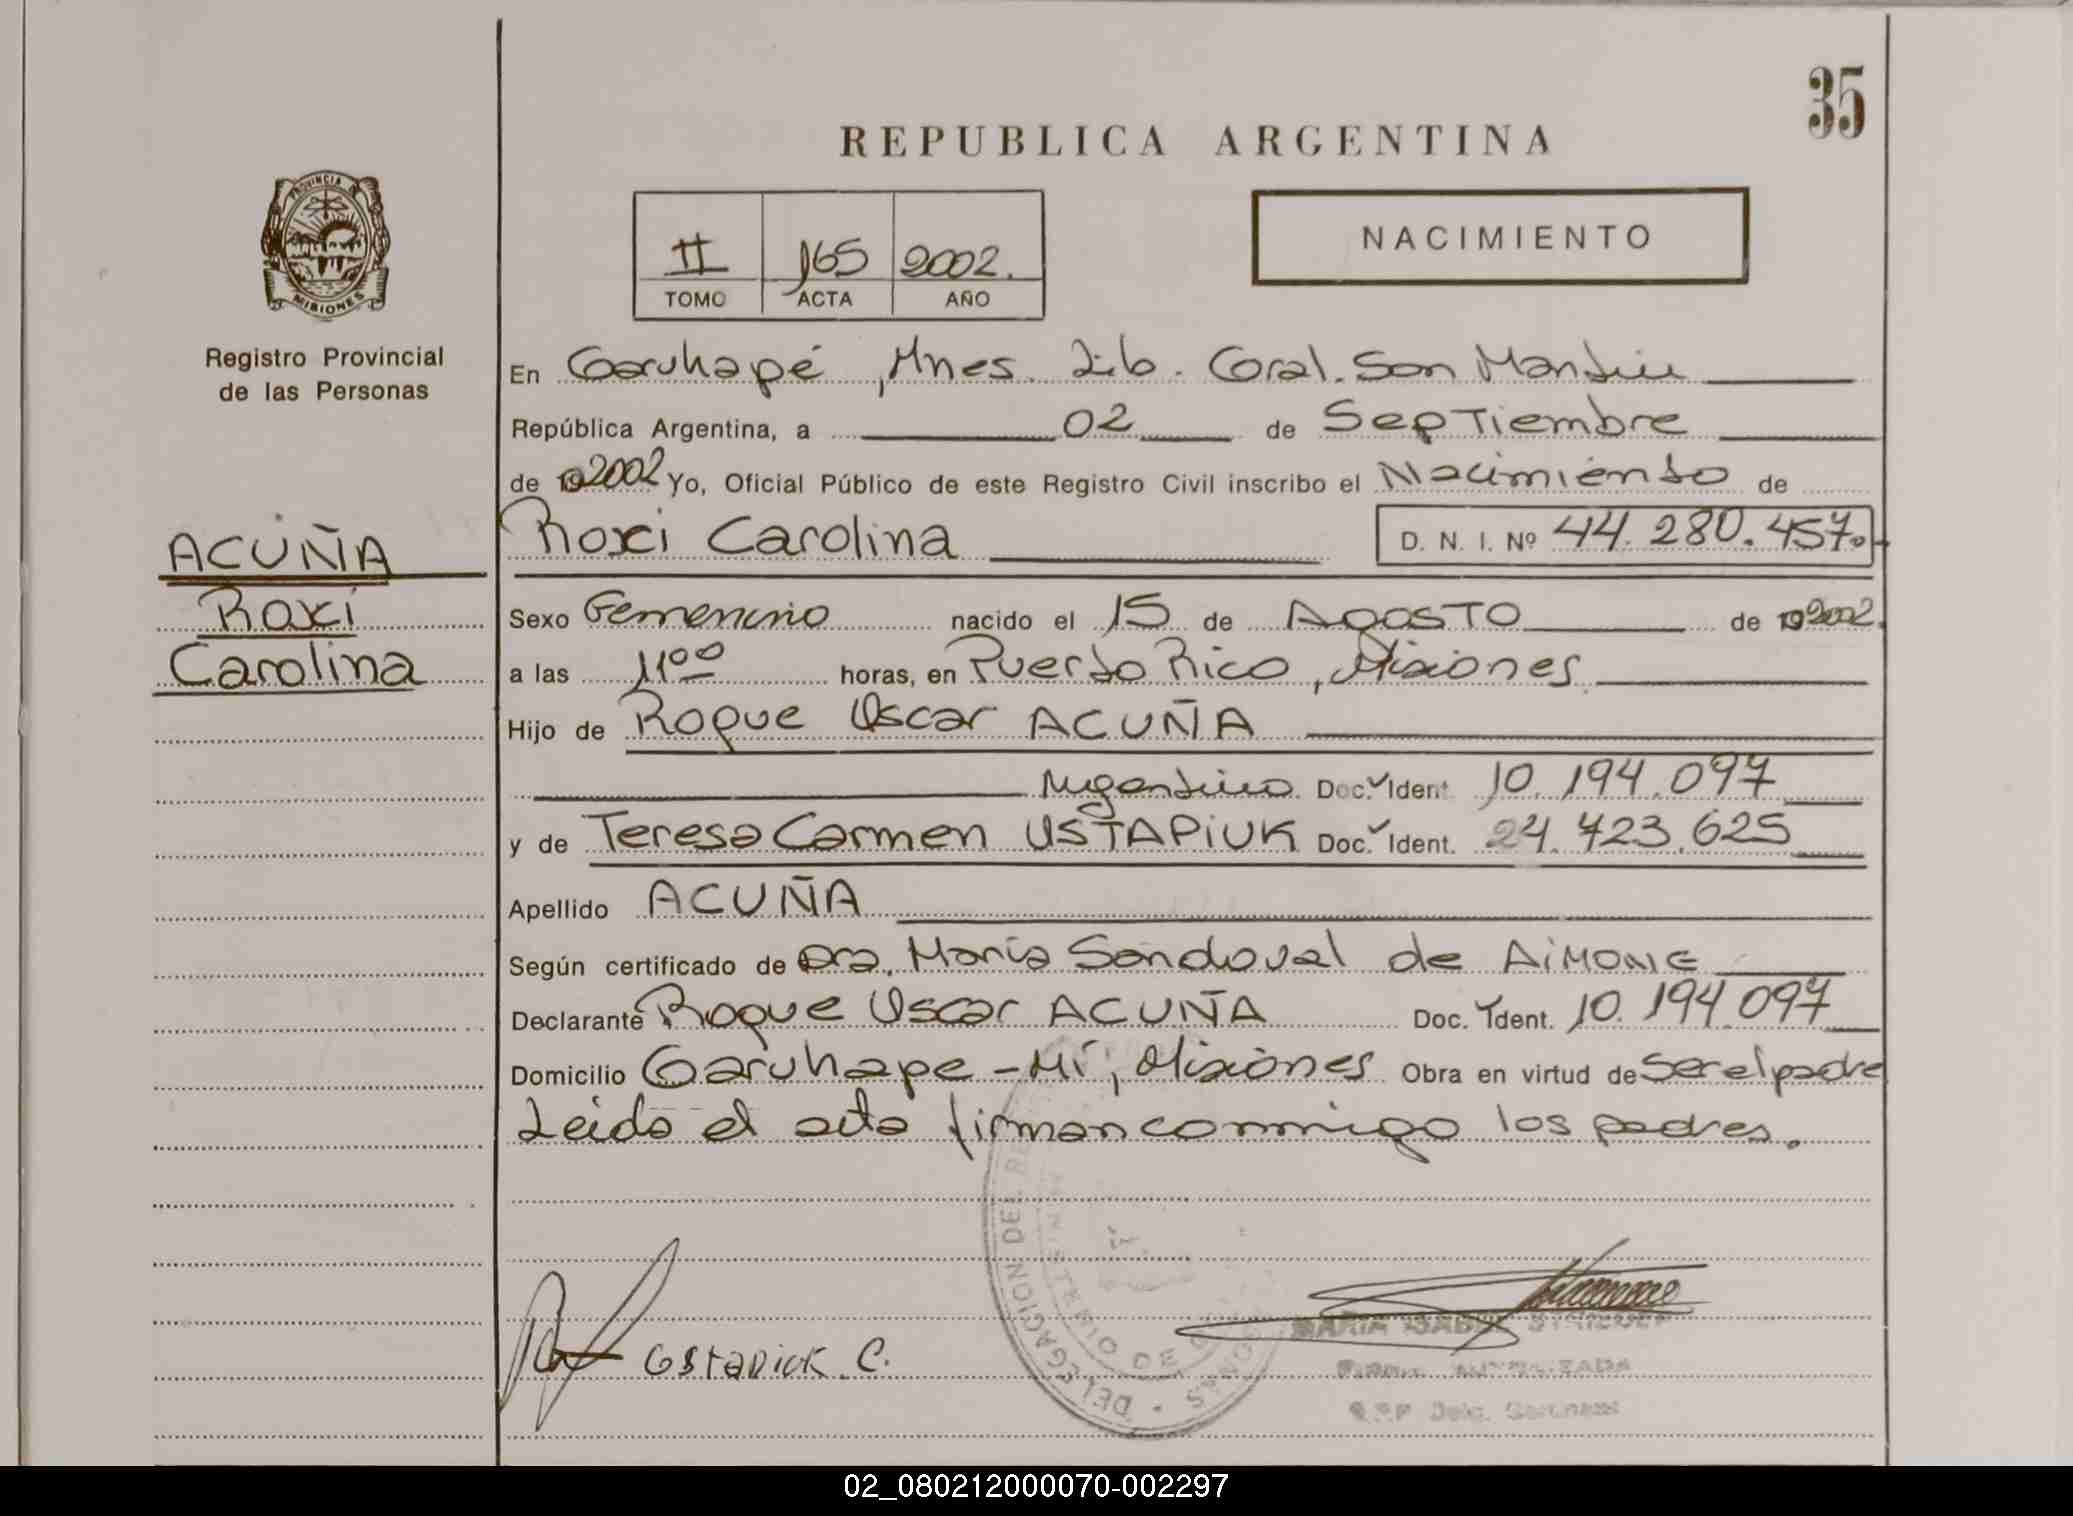 35
REPUBLICA ARGENTINA
PROVINCIA DE
MISIONES
Registro Provincial
de las Personas
NACIMIENTO
II 165 2002.
TOMO ACTA AÑO
En Garuhapé, Mnes. Lib. Gral. San Martín
República Argentina, a 02 de Septiembre
de 192002 Yo, Oficial Público de este Registro Civil inscribo el Nacimiento de
Roxi Carolina D. N. I. Nº 44.280.457.
ACUÑA
Roxi
Carolina
Sexo Femenino nacido el 15 de Agosto de 192002.
a las 11ºº horas, en Puerto Rico, Misiones
Hijo de Roque Oscar ACUÑA
Argentino Doc. Ident. 10.194.097
y de Teresa Carmen USTAPIUK Doc. Ident. 24.723.625
Apellido ACUÑA
Según certificado de Dra. María Sandoval de AiMONE
Declarante Roque Oscar ACUÑA Doc. Ident. 10.194.097
Domicilio Garuhape-Mí, Misiones Obra en virtud de ser el padre
Leido el acta firman conmigo los padres.
DELEGACION DEL
MINISTERIO DE
Ustapiuk C.
MARIA ISABEL
FIRMA AUTORIZADA
R.P.P. Deleg. Garuhape
02_080212000070-002297